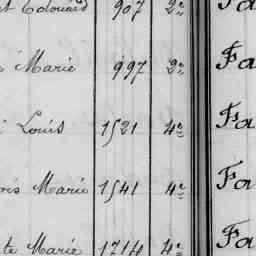 t Edouard 907 2e Fa
Marie 997 2e Fa
Louis 1521 4e Fa
ois Marie 1541 4e Fa
te Marie 1714 4e Fa